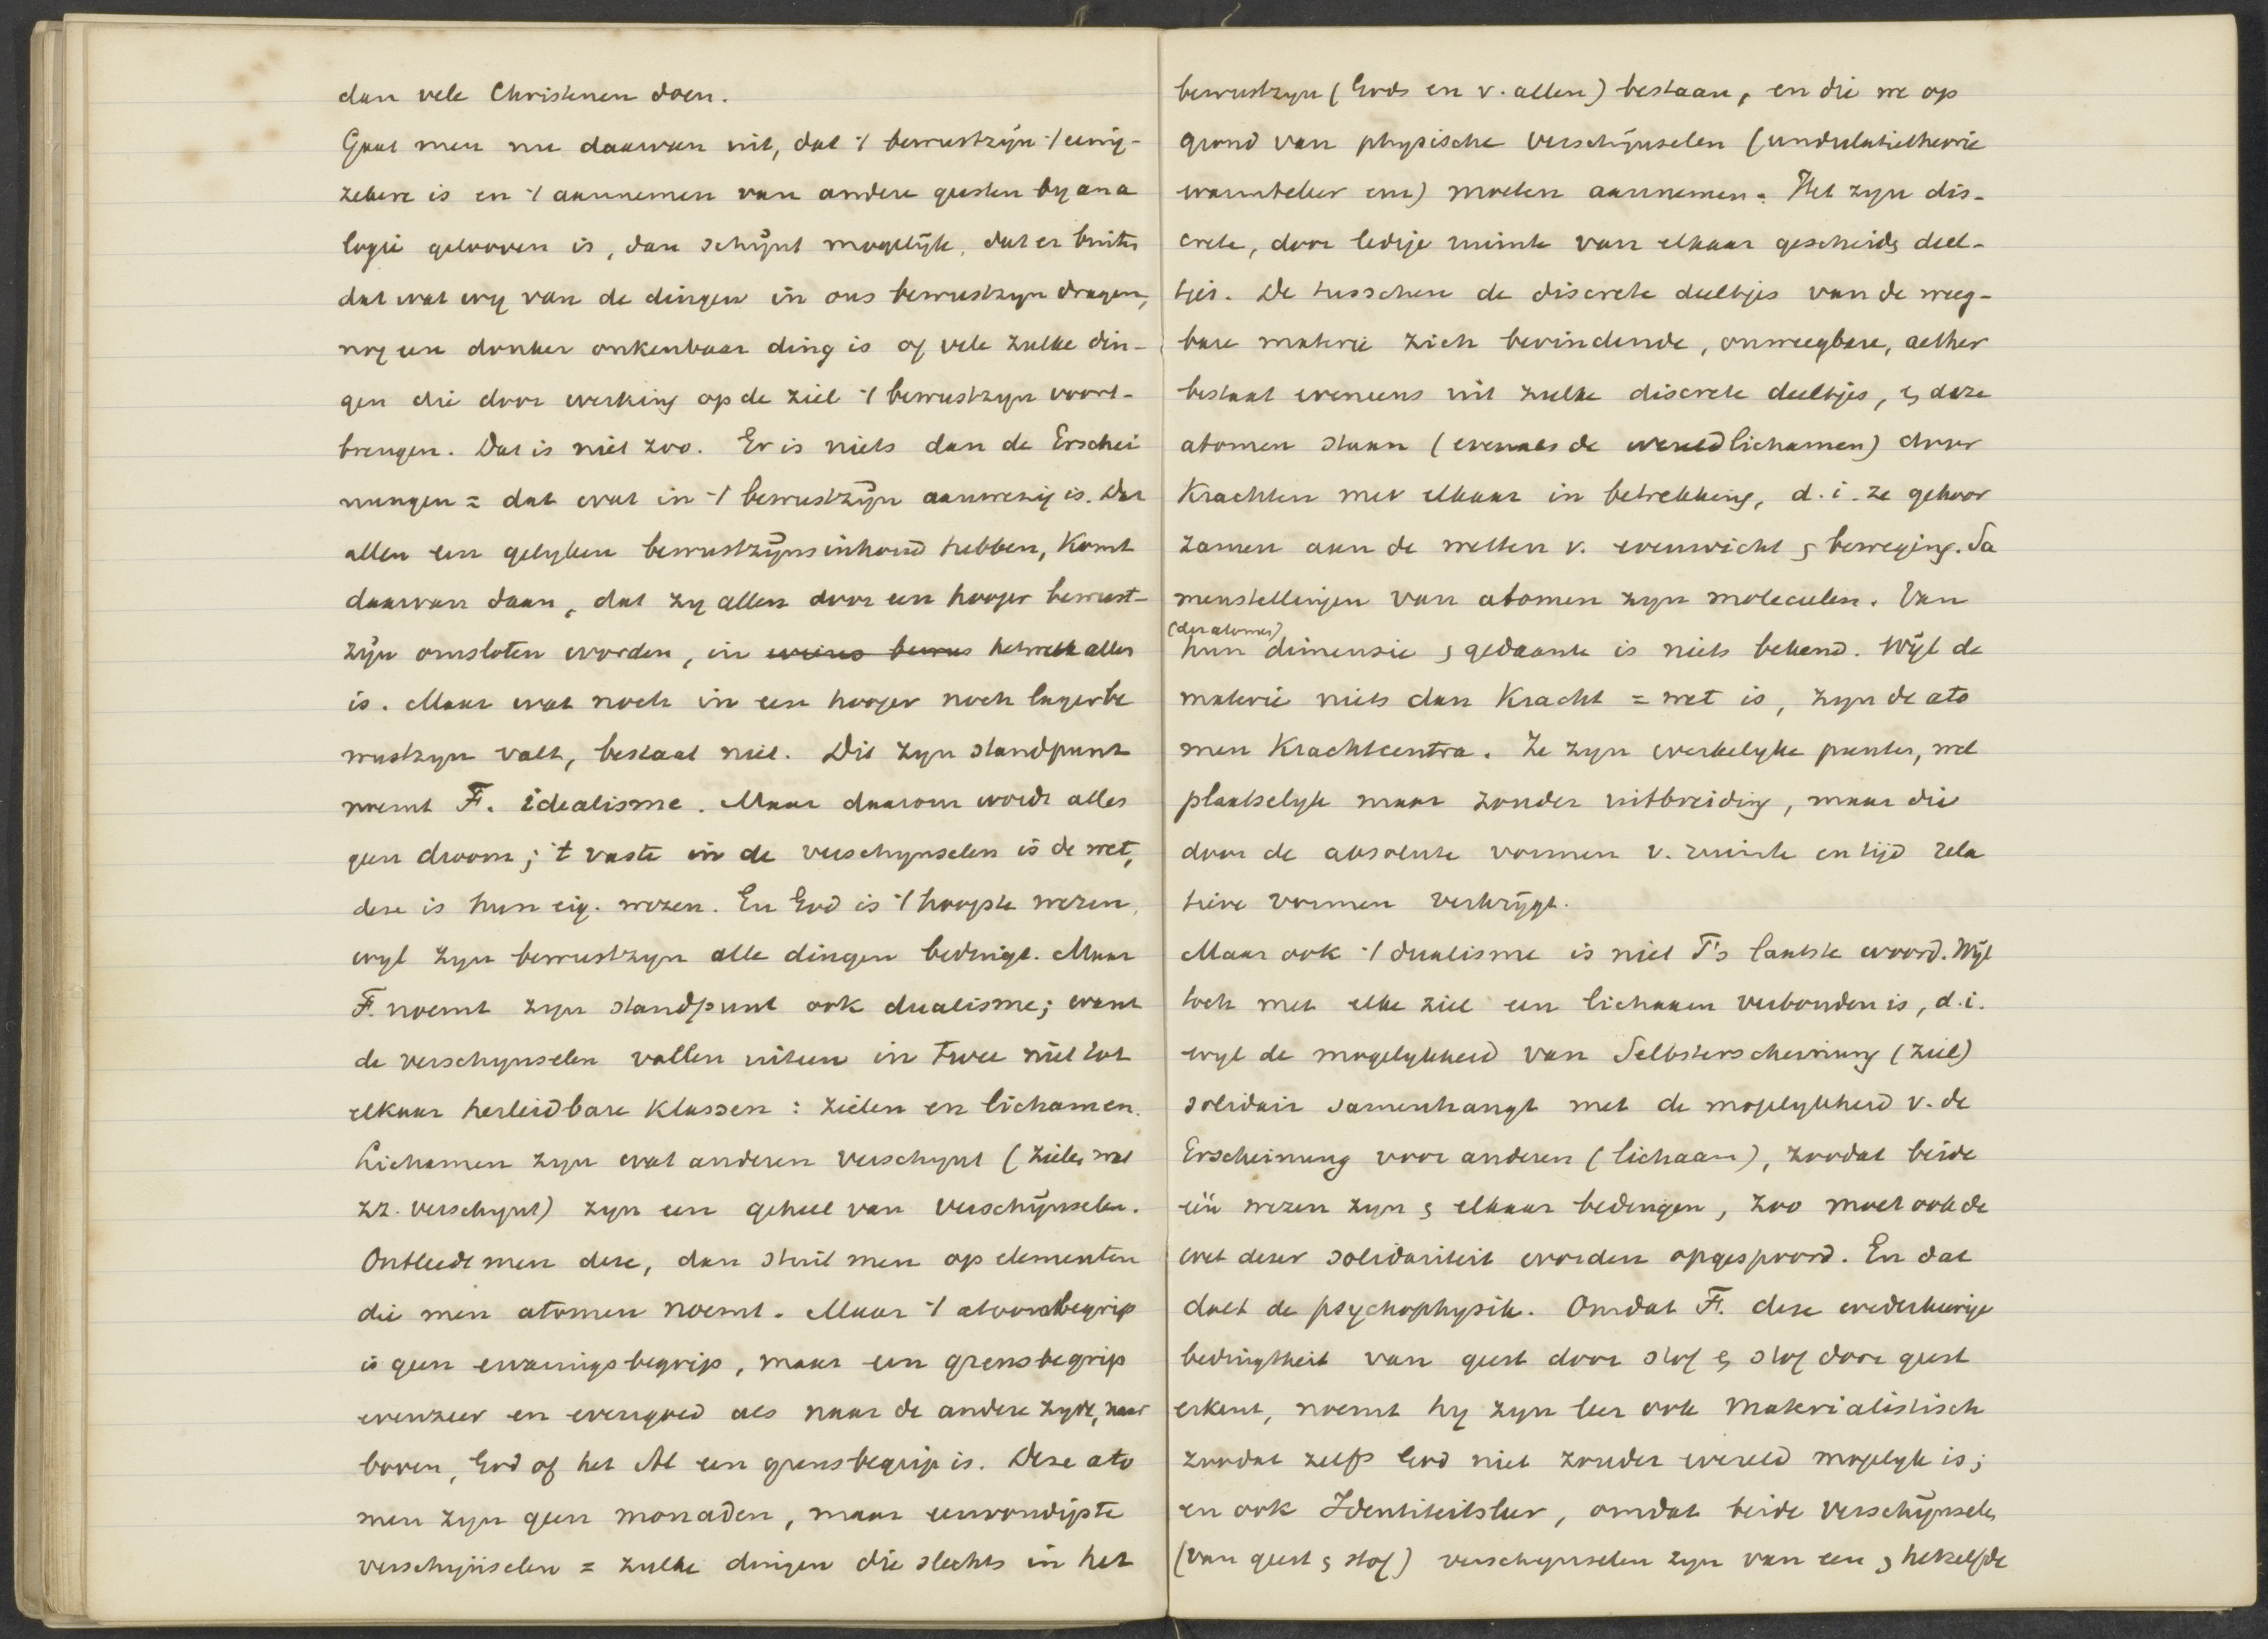 dan vele Christenen doen.
Gaat men nu daarvan uit, dat 't bewustzijn 't eenig-
zekere is en 't aannemen van andere geesten by ana
logie gelooven is, dan schijnt mogelijk, dat er buiten
dat wat wy van de dingen in ons bewustzyn dragen,
nog een donker onkenbaar ding is of vele zulke din-
gen die door werking op de ziel 't bewustzyn voort-
brengen. Dat is niet zoo. Er is niets dan de Erschei
nungen = dat wat in 't bewustzijn aanwezig is. Dat
allen een gelyken bewustzijnsinhoud hebben, komt
daarvan daan, dat zy allen door een hooger bewust-
zijn omsloten worden, in wiens bewus hetwelk alles
is. Maar wat noch in een hooger noch lager be
wustzyn valt, bestaat niet. Dit zyn standpunt
noemt F. idealisme. Maar daarom wordt alles
geen droom; 't vaste in de verschynselen is de wet,
deze is hun eig. wezen. En God is 't hoogste wezen,
wyl zyn bewustzyn alle dingen bedingt. Maar
F. noemt zyn standpunt ook dualisme; want
de verschynselen vallen uiteen in twee niet tot
elkaar herleidbare klassen: zielen en lichamen.
Lichamen zyn wat anderen verschynt (zielen wat
zz. verschynt) zyn een geheel van verschijnselen.
Ontleedt men deze, dan stuit men op elementen
die men atomen noemt. Maar 't atoombegrip
is geen ervaringsbegrip, maar een grensbegrip
evenzeer en evengoed als naar de andere zyde, naar
boven, God of het Al een grensbegrip is. Deze ato
men zyn geen monaden, maar eenvoudigste
verschijnselen = zulke dingen die slechts in het
bewustzyn (Gods en v. allen) bestaan, en die we op
grond van physische verschijnselen (undulatietheorie
warmteleer enz) moeten aannemen. Het zyn dis-
crete, door ledige ruimte van elkaar gescheiden deel-
tjes. De tusschen de discrete deeltjes van de weeg-
bare materie zich bevindende, onweegbare, aether
bestaat eveneens uit zulke discrete deeltjes, & deze
atomen staan (evenals de wereldlichamen) door
Krachten met elkaar in betrekking, d.i. ze gehoor
zamen aan de wetten v. evenwicht & beweging. Sa
menstellingen van atomen zyn moleculen. Van
(der atomen)
hun dimensie & gedaante is niets bekend. Wijl de
materie niets dan Kracht = wet is, zyn de ato
men Krachtcentra. Ze zyn werkelyke punten, wel
plaatselyk maar zonder uitbreiding, maar die
door de absolute vormen v. ruimte en tijd rela
tieve vormen verkrijgt.
Maar ook 't dualisme is niet F's laatste woord. Wijl
toch met elke ziel een lichaam verbonden is, d.i.
wyl de mogelykheid van Selbsterscheinung (ziel)
solidair samenhangt met de mogelykheid v. de
Erscheinung voor anderen (lichaam), zoodat beide
één wezen zyn & elkaar bedingen, zoo moet ook de
wet dezer solidariteit worden opgespoord. En dat
doet de psychophysik. Omdat F. deze wederkeerige
bedingtheit van geest door stof & stof door geest
erkent, noemt hy zyn leer ook materialistisch
zoodat zelfs God niet zonder wereld mogelyk is;
en ook Identiteitsleer, omdat beide verschijnselen
(van geest & stof) verschynselen zyn van een & hetzelfde